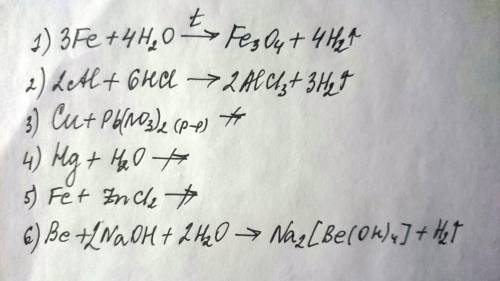 1) 3Fe + 4H₂O →ᵗ Fe₃O₄ + 4H₂↑
2) 2Al + 6HCl → 2AlCl₃ + 3H₂↑
3) Cu + Pb(NO₃)₂ (р-р) ↛
4) Hg + H₂O ↛
5) Fe + ZnCl₂ ↛
6) Be + 2NaOH + 2H₂O → Na₂[Be(OH)₄] + H₂↑